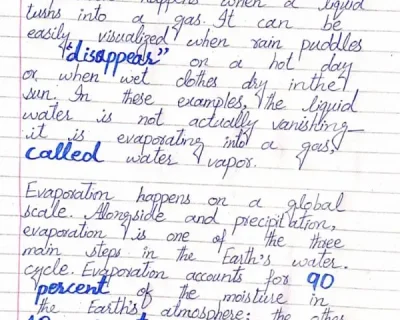 happens when a liquid
turns into a gas. It can be
easily visualized when rain puddles
"disappear" on a hot day
or when wet clothes dry in the
sun. In these examples, the liquid
water is not actually vanishing—
it is evaporating into a gas,
called water vapor.
Evaporation happens on a global
scale. Alongside and precipitation,
evaporation is one of the three
main steps in the Earth's water.
cycle. Evaporation accounts for 90
percent of the moisture in
the Earth's atmosphere; the other